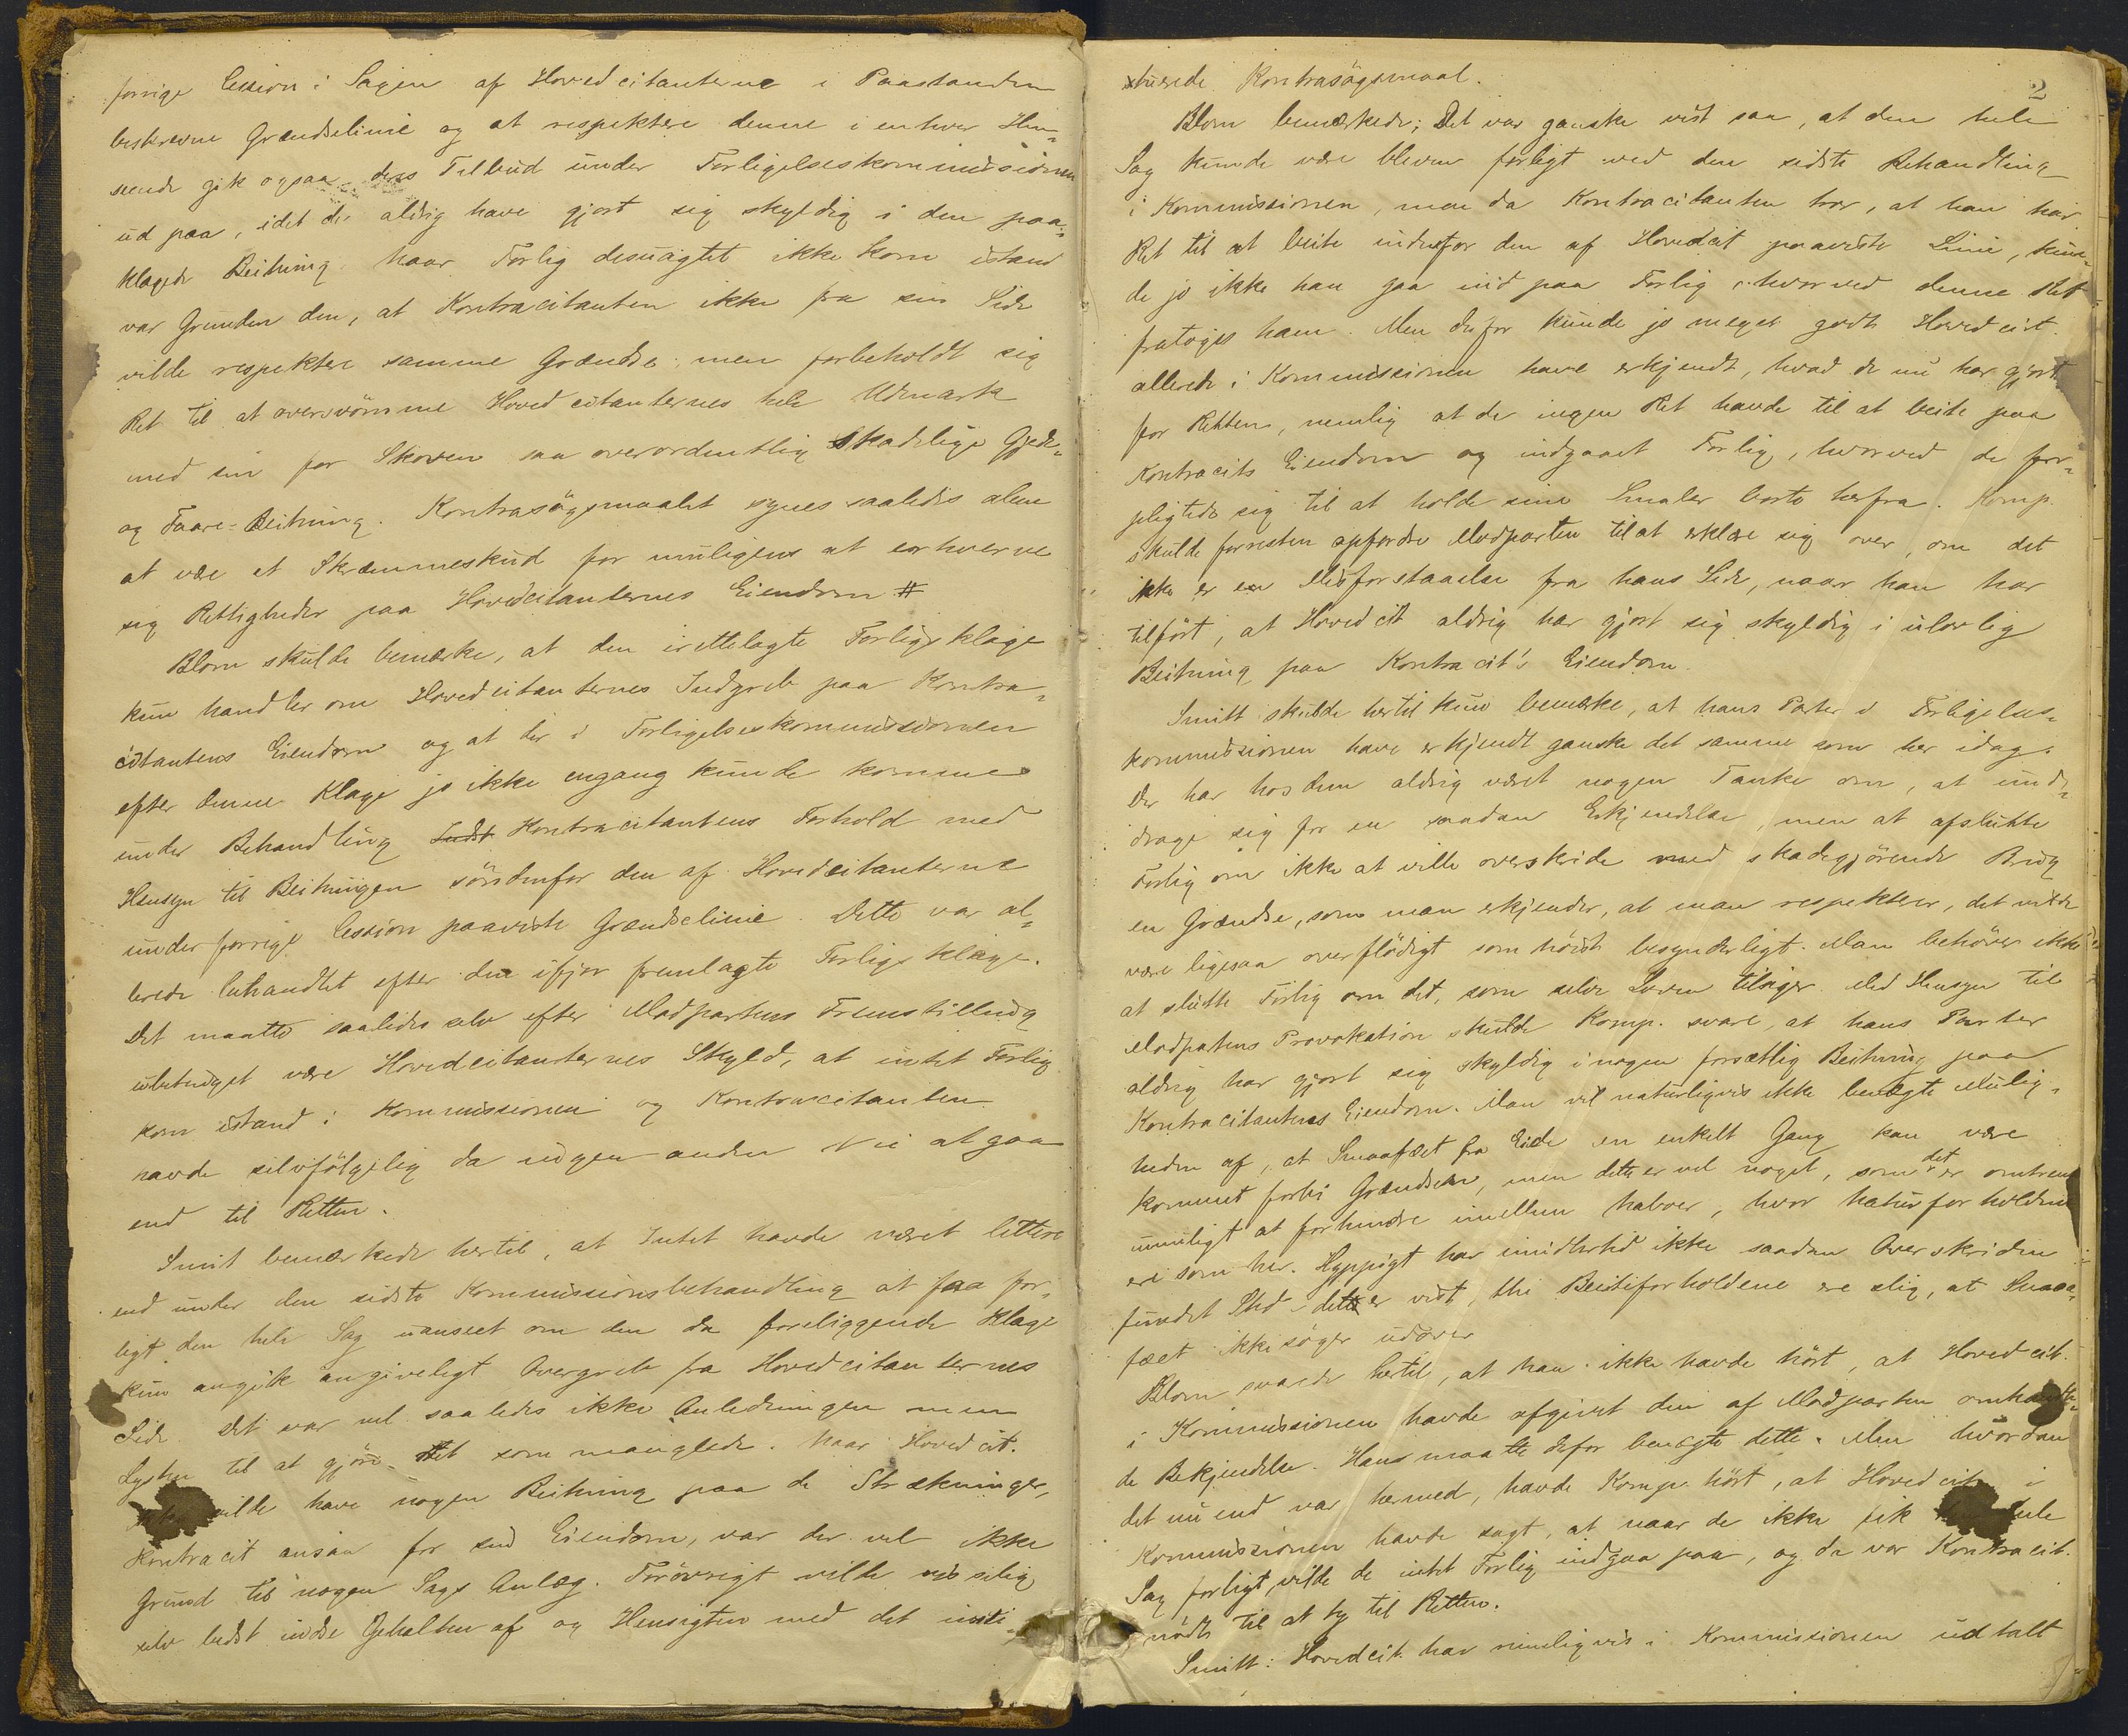 forrige Cession i Sagen af Hovedcitanterne i Paastanden
beskrevne Grændselinie og at respektere denne i enhver Hen-
seende gik ogsaa deres Tilbud under Forligelseskommissionen
ud paa, idet de aldrig have gjort sig skyldig i den paa-
klagede Beitning. Naar Forlig desuagtet ikke kom istand
var Grunden den, at Kontracitanten ikke fra sin Side
vilde respektere samme Grændse men forbeholdt sig
Ret til at oversvömme Hovedcitanternes hele Udmark
med sin for Skoven saa overordentlig skadelige Gjede-
og Faare-Beitning. Kontrasögsmaalet synes saaledes alene
at være et Skræmmeskud for muligens at erhverve
sig Rettigheder paa Hovedcitanternes Eiendom #
Blom skulde bemærke, at den irettelagte Forligsklage
kun handler om Hovedcitanternes Indgreb paa Kontra-
citantens Eiendom og at der i Forligelseskommissionen
efter denne Klage jo ikke engang kunde komme
under Behandling Kontracitantens Forhold med
Hensyn til Beitningen söndenfor den af Hovedcitanterne
under forrige Cession paaviste Grændselinie. Dette var al-
lerede behandlet efter den ifjor fremlagte Forligsklage.
Det maatte saaledes selv efter Modpartens Fremstilling
ubetinget være Hovedcitanternes Skyld, at intet Forlig
kom istand i Kommissionen og Kontracitanten
havde selvfölgelig da ingen anden Vei at gaa
end til Retten.
Smit bemærkede hertil, at Intet havde været lettere
end under den sidste Kommissionsbehandling at faa for-
ligt den hele Sag uanseet om den da foreliggende Klage
kun angik angiveligt Overgreb fra Hovedcitanternes
Side. Det var vel saaledes ikke Anledningen men
Lysten til at gjöre det som manglede. Naar Hovedcit.
vilde have nogen Beitning paa de Strækninger,
Kontracit ansaa for sin Eiendom, var der vel ikke
Grund til nogen Sags Anlæg. Forövrigt vilde
selv bedst indse Gehalten af og Hensigten med det insti-
2
tuerede Kontrasögsmaal.
Blom bemærkede; Det var ganske vist saa, at den hele
Sag kunde være bleven forligt ved den sidste Behandling
i Kommissionen, men da Kontracitanten tror, at han har
Ret til at beite indenfor den af Hovedcit paaviste Linie, kun-
de jo ikke han gaa ind paa Forlig, hvorved denne Ret
fratoges ham. Men derfor kunde jo meget godt Hovedcit.
allerede i Kommissionen have erkjendt, hvad de nu har gjort
for Retten, nemlig at de ingen Ret havde til at beite paa
Kontracits Eiendom og indgaaet Forlig, hvorved de for-
pligtede sig til at holde sine Smaler borte herfra. Komp.
skulde forresten opfordre Modparten til at erklære sig over, om det
ikke er en Misforstaaelse fra hans Side, naar han har
tilfört, at Hovedcit aldrig har gjort sig skyldig i ulovlig
Beitning paa Kontracit's Eiendom.
Smitt skulde hertil kun bemærke, at hans Parter i Forligelses-
kommissionen have erkjendt ganske det samme som her idag.
Der har hos dem aldrig været nogen Tanke om, at und-
drage sig for en saadan Erkjendelse, men at afslutte
Forlig om ikke at ville overskride med skadegjörende Brug
en Grændse, som man erkjender, at man respekterer, det vilde
være ligesaa overflödigt som höist besynderligt. Man behöver ikke
at slutte Forlig om det, som selve Loven tilsiger. Med Hensyn til
Modpatens Provokation skulde Komp. svare, at hans Parter
aldrig har gjort sig skyldig i nogen forsætlig Beitning paa
Kontracitantens Eiendom. Man vil naturligvis ikke benægte Mulig-
heden af, at Smaafæet fra Eide en enkelt Gang kan være
kommet forbi Grændsen, men dette er vel noget, som det er omtrent
umuligt at forhindre imellem Naboer, hvor Naturforholdene
ere som her. Hyppigt har imidlertid ikke saadan Overskriden
fundet Sted - dette er vist, thi Beiteforholdene ere slig, at Smaa-
fæet ikke söger udover
Blom svarede hertil, at han ikke havde hört, at Hovedcit.
i Kommissionen havde afgivet den af Modparten omhandle-
de Bekjendelse. Hans maatte derfor benægte dette. Men hvordan
det nu end var hermed, havde Komp. hört, at Hovedcit i
Kommissionen havde sagt, at naar de ikke fik hele
Sag forligt, vilde de intet Forlig indgaa paa, og da var Kontracit.
nödt til at ty til Retten.
Smitt: Hovedcit. har rimeligvis i Kommissionen udtalt